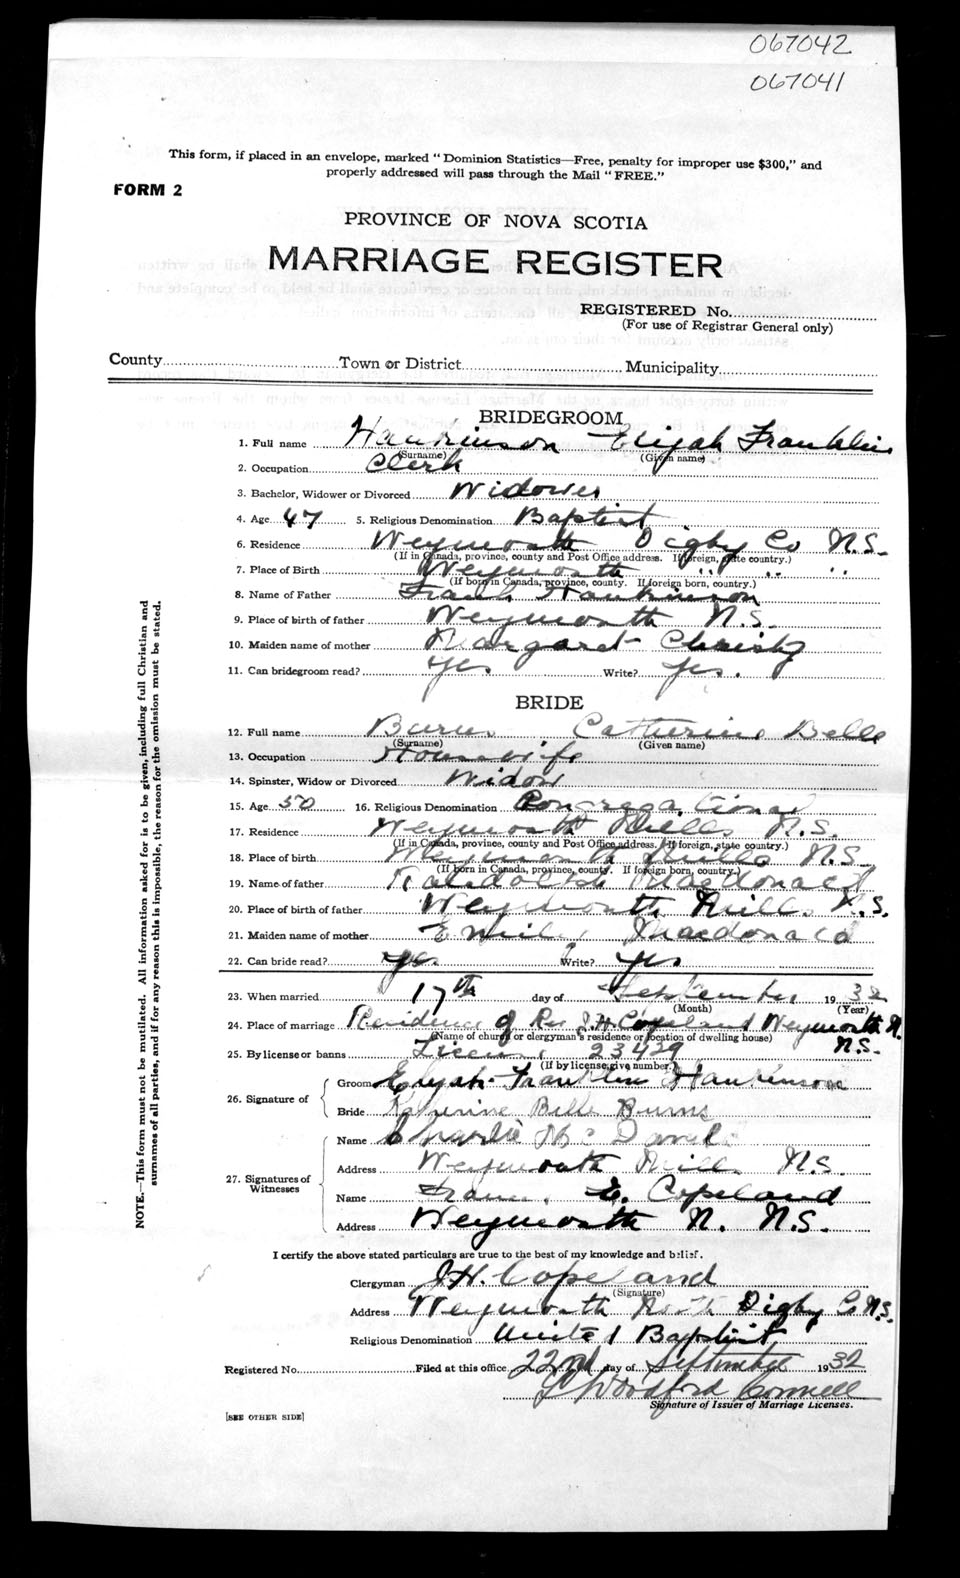 067042
067041
This form, if placed in an envelope, marked "Dominion Statistics—Free, penalty for improper use $300," and
properly addressed will pass through the Mail "FREE."
FORM 2
PROVINCE OF NOVA SCOTIA
MARRIAGE REGISTER
REGISTERED No.
(For use of Registrar General only)
County Town or District Municipality
BRIDEGROOM
1. Full name Hankinson Elijah Franklin
(Surname) (Given name)
2. Occupation Clerk
3. Bachelor, Widower or Divorced Widower
4. Age 47 5. Religious Denomination Baptist
6. Residence Weymouth Digby Co N.S.
(If in Canada, province, county and Post Office address. If foreign, state country.)
7. Place of Birth Weymouth " " "
(If born in Canada, province, county. If foreign born, country.)
8. Name of Father Frank Hankinson
9. Place of birth of father Weymouth N.S.
10. Maiden name of mother Margaret Christy
11. Can bridegroom read? yes Write? yes.
BRIDE
12. Full name Burns Catherine Belle
(Surname) (Given name)
13. Occupation Housewife
14. Spinster, Widow or Divorced Widow
15. Age 50 16. Religious Denomination Congregational
17. Residence Weymouth Mills N.S.
(If in Canada, province, county and Post Office address. If foreign, state country.)
18. Place of birth Weymouth Mills N.S.
(If born in Canada, province, county. If foreign born, country.)
19. Name of father Macdonald
20. Place of birth of father Weymouth Mills N.S.
21. Maiden name of mother Macdonald
22. Can bride read? yes Write? yes
23. When married 17th day of September 1932
(Month) (Year)
24. Place of marriage Residence of Rev J.H. Copeland Weymouth N.
N.S.
(Name of church or clergyman's residence or location of dwelling house)
25. By license or banns License 23429
(If by license, give number.)
26. Signature of
Groom Elijah Franklin Hankinson
Bride Katherine Belle Burns
27. Signatures of
Witnesses
Name Charlie
Address Weymouth Mills N.S.
Name E. Copeland
Address Weymouth N. N.S.
I certify the above stated particulars are true to the best of my knowledge and belief.
Clergyman J.H. Copeland
(Signature)
Address Weymouth North Digby Co N.S.
Religious Denomination United Baptist
Registered No. Filed at this office 22nd day of September 1932
Woodford
Signature of Issuer of Marriage Licenses.
[SEE OTHER SIDE]
NOTE.—This form must not be mutilated. All information asked for is to be given, including full Christian and
surnames of all parties, and if for any reason this is impossible, the reason for the omission must be stated.